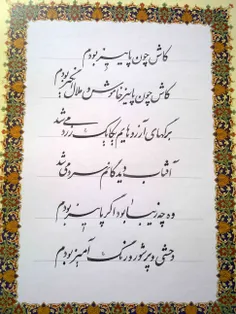 کاش چون پاییز بودم
کاش چون پاییز خاموش و ملال انگیز بودم
برگهای آرزوهایم یکایک زرد می شد
آفتاب دیدگانم سرد می شد
وه چه زیبا بود اگر پاییز بودم
وحشی و پر شور و رنگ آمیز بودم